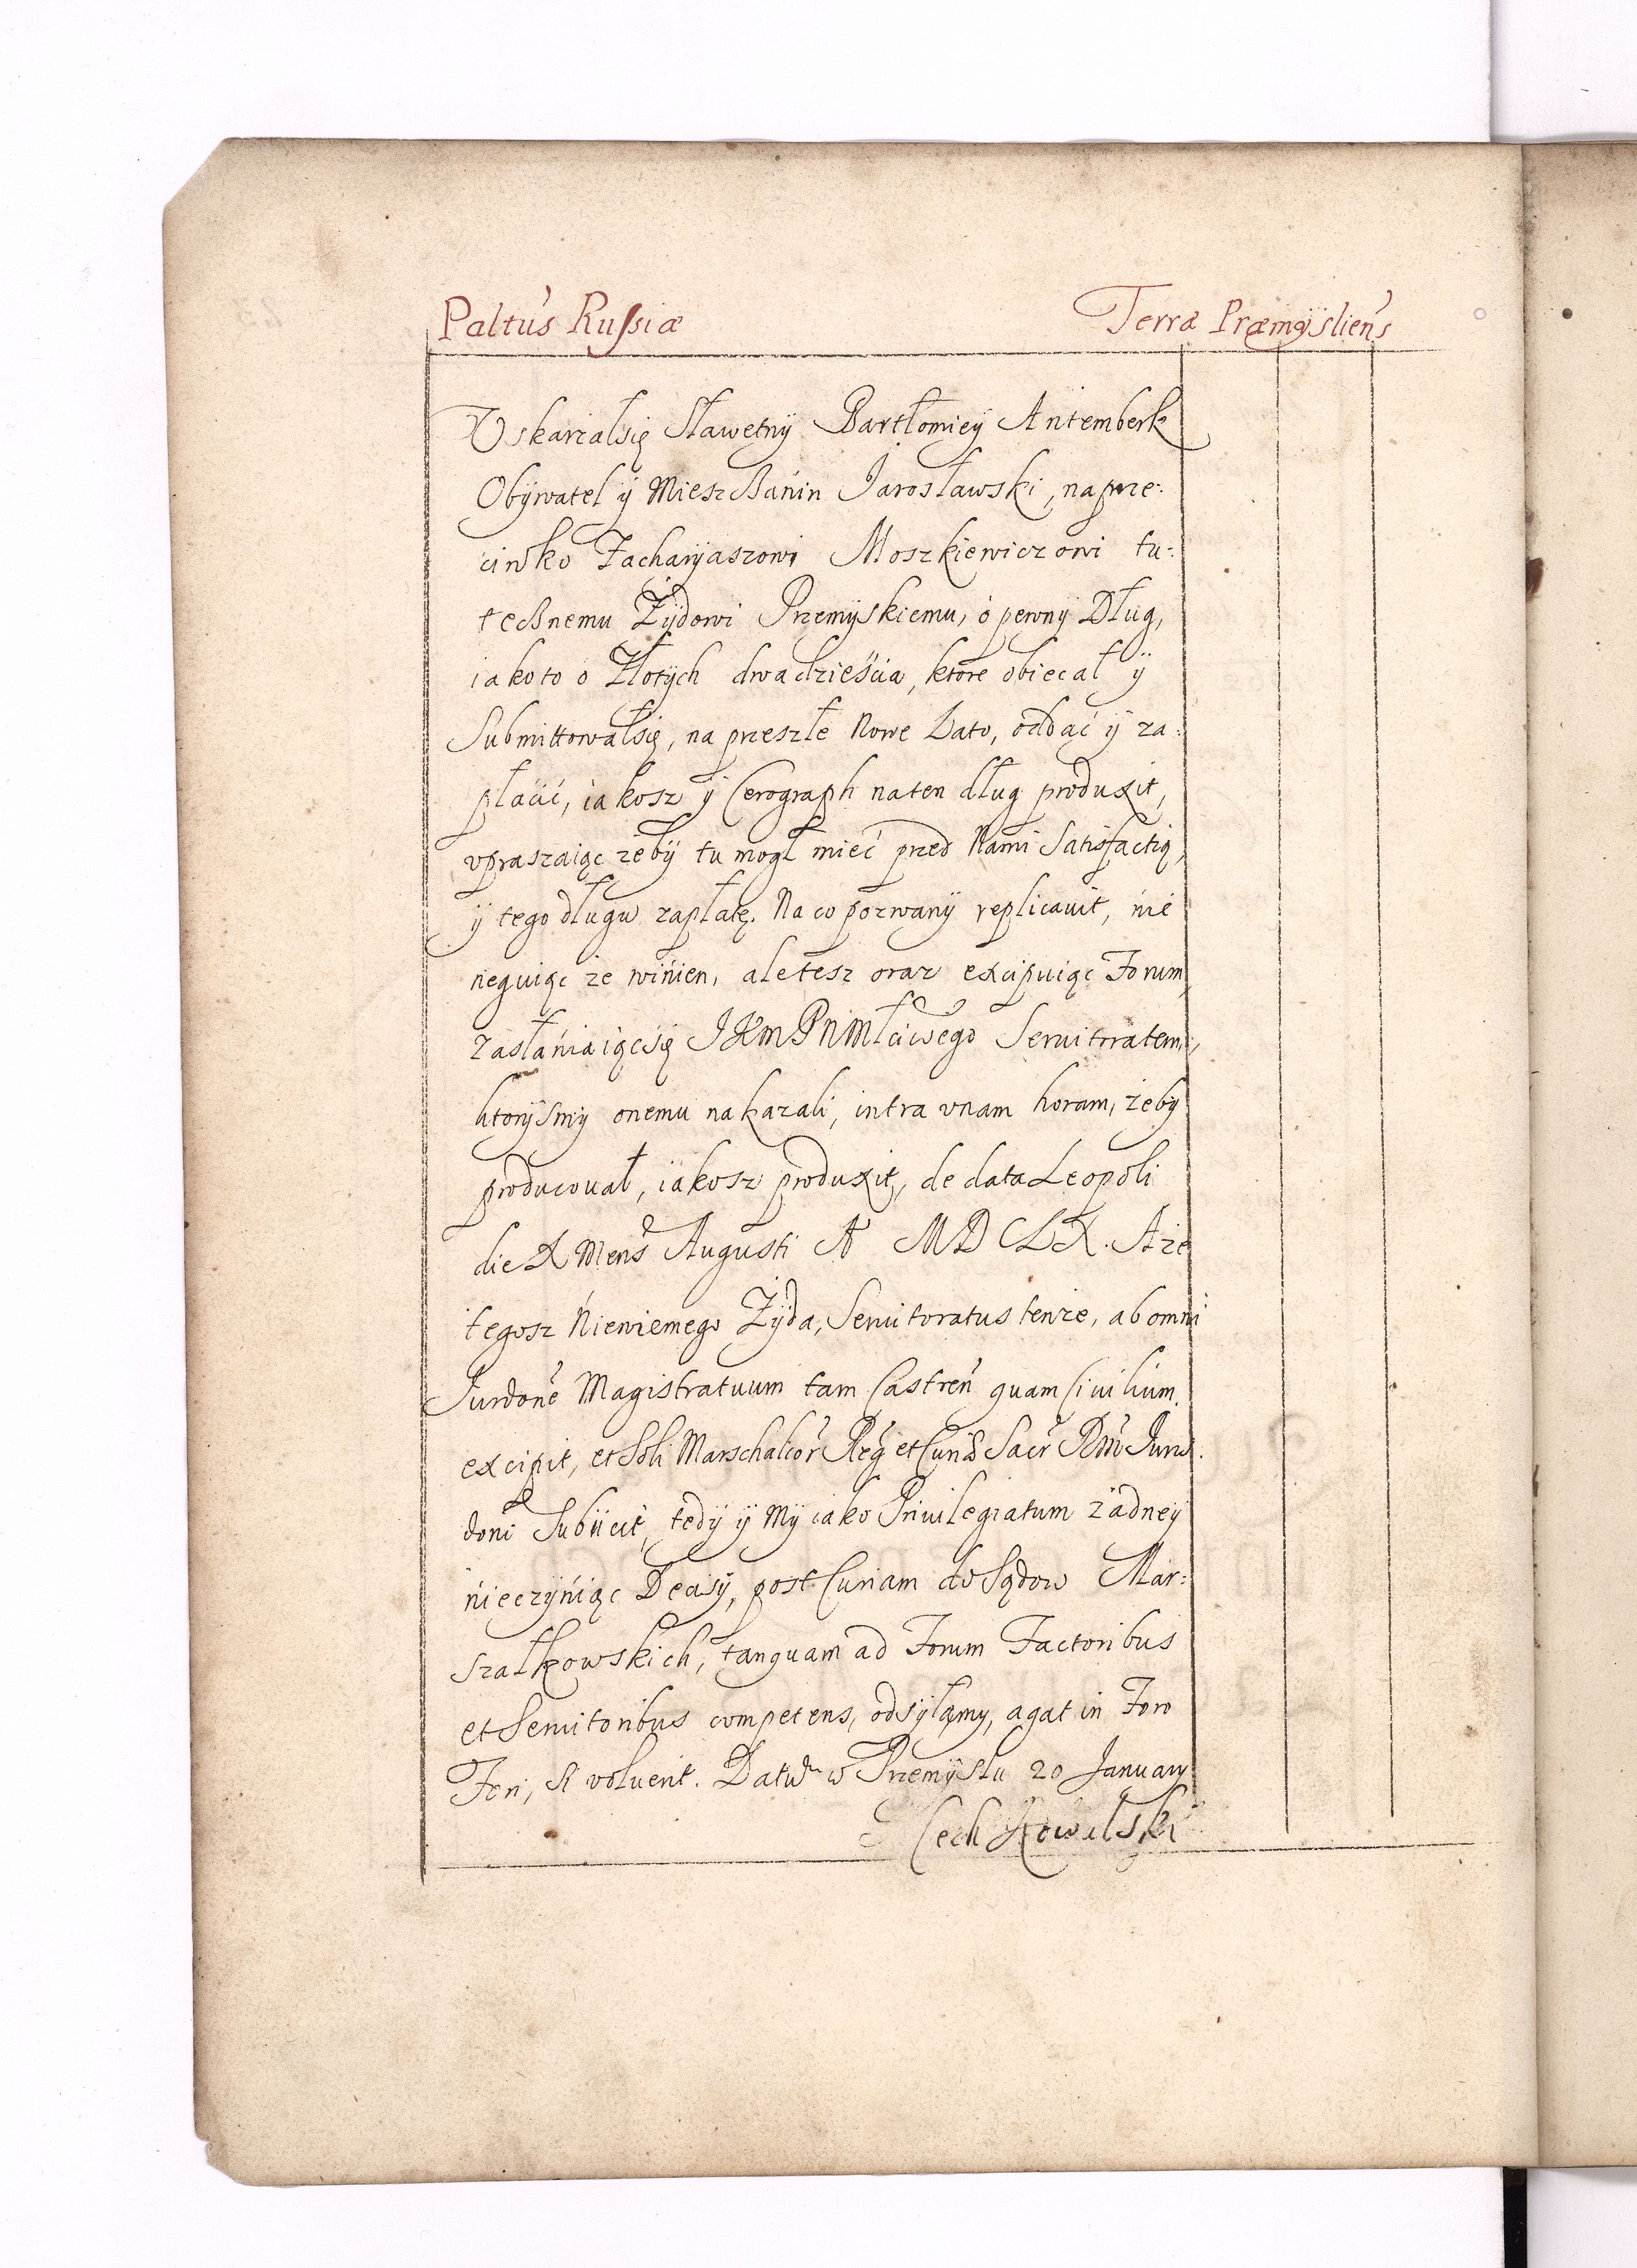 Paltu's Russiæ
Terræ Præmÿslien's
Uskarzałsię Sławetnÿ Bartłomieÿ Antemberk
Obÿwatel ÿ Mieszßanin Jarosławski, naprze:
ciwko Zacharÿaszowi Moszkiewiczowi tu:
teßnemu Żÿdowi Przemÿskiemu, o pewnÿ Dług,
iakoto o Złotÿch dwadzieścia, ktore obiecał ÿ
Submittowałsię, na przeszłe Nowe Lato, oddać ÿ za:
płacić, iakosz ÿ Cerograph naten dług produxit,
upraszaiąc zebÿ tu mogł mieć przed Nami Satisfactią,
ÿ tego długu zapłatę. Naco pozwanÿ replicauit, nie
neguiąc ze winien, aletesz oraz excipuiąc Forum,
zasłaniaiącsię JKM PNMłciwego Seruitoratem,
ktorÿsmÿ onemu nakazali, intra unam horam, żeby
producował, iakosz produxit, de data Leopoli
die X Mens Augusti A MDCLX. A ze
tegosz Niewiernego Żÿda, Seruitoratus tenze, ab omni
Jurdone Magistratuum tam Castren quam Ciuilium
excipit, et Soli Marschalcor Reg et Curiæ Sacr RM Juris
doni Subiicit, tedÿ ÿ Mÿ iako Priuilegiatum żadneÿ
nieczÿniąc Decisÿ, post Curiam do Sądow Mar:
szałkowskich, tanquam ad Forum Factoribus
et Seruitoribus competens, odsÿłamy, agat in Foro
Fori, Si voluerit. Datu w Przemÿslu 20 January
Cech Kowalski